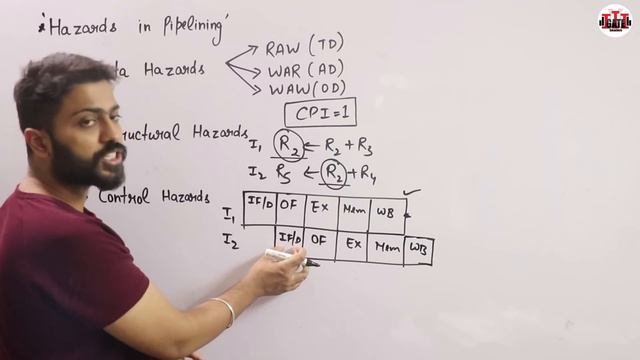 'Hazards in Pipelining'
ta Hazards
RAW (TD)
WAR (AD)
WAW (OD)
CPI = 1
uctural Hazards
I1 R2 ← R2 + R3
I2 R5 ← R2 + R4
Control Hazards
I1 IF/D OF Ex Mem WB ✓
I2 IF/D OF EX Mem WB
GATE